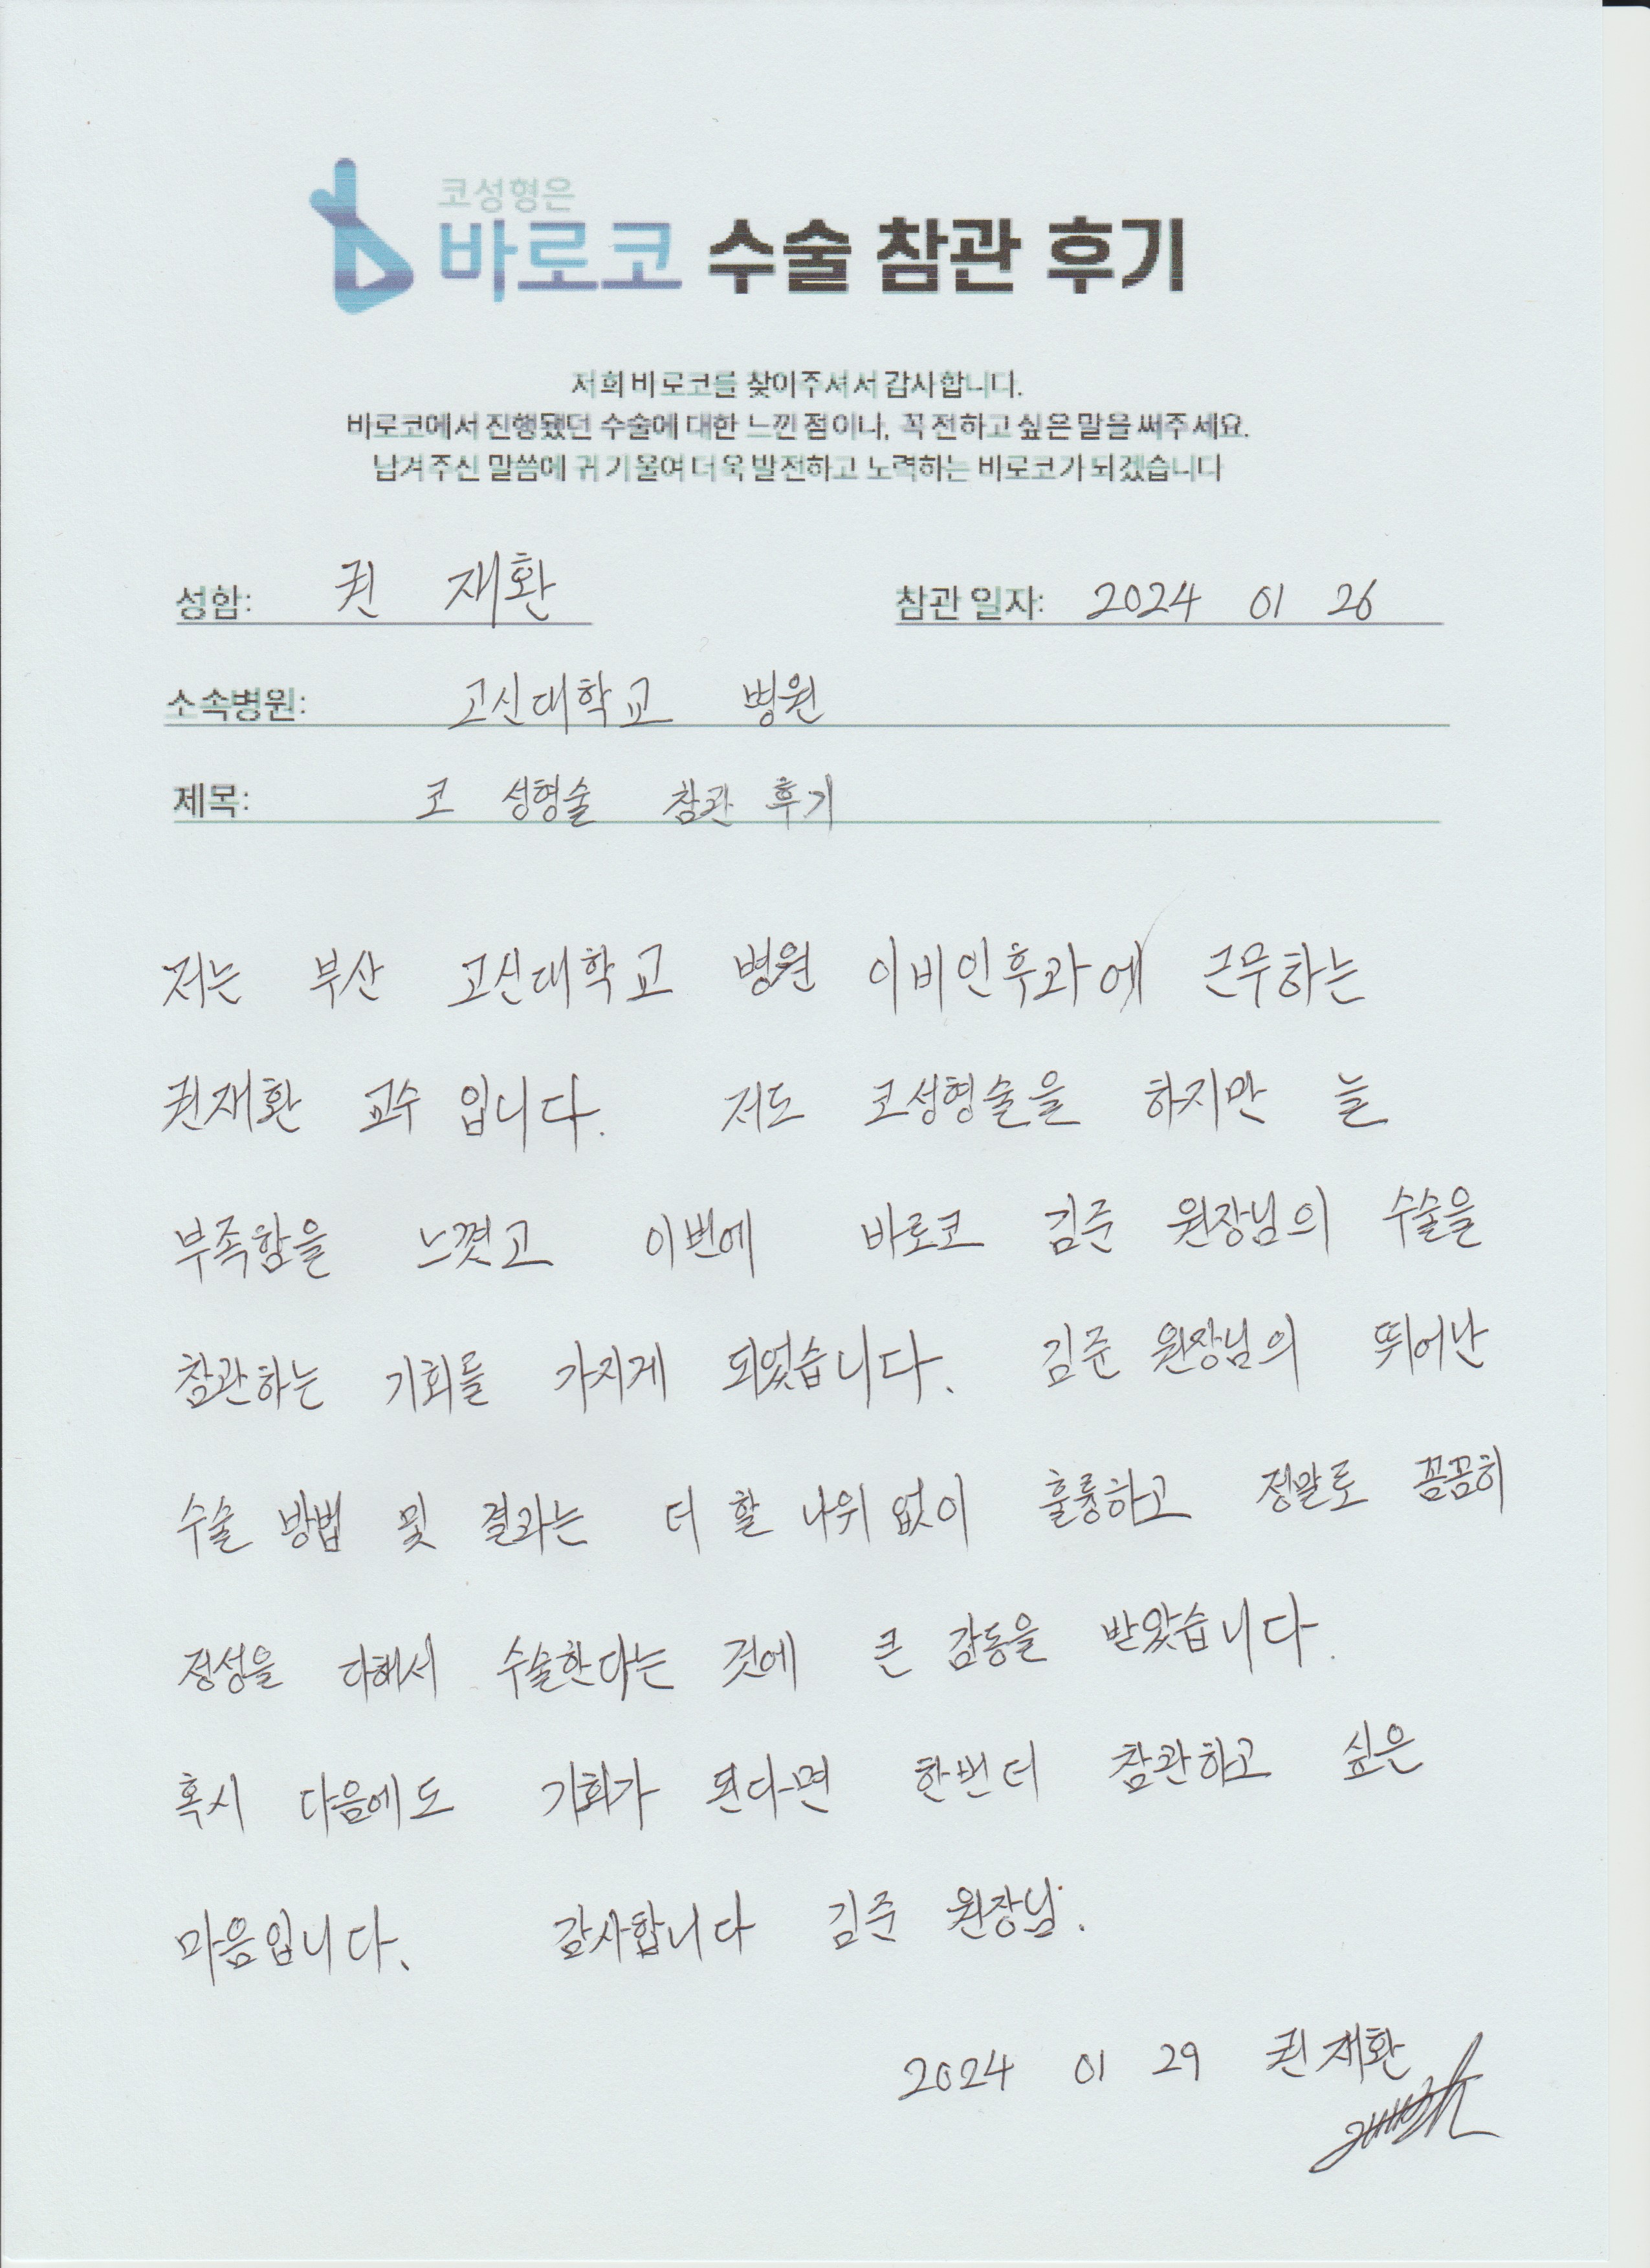 코성형은
바로코 수술 참관 후기
저희 바로코를 찾아주셔서 감사합니다.
바로코에서 진행됐던 수술에 대한 느낀 점이나, 꼭 전하고 싶은 말을 써주세요.
남겨주신 말씀에 귀 기울여 더욱 발전하고 노력하는 바로코가 되겠습니다
성함: 권 재환 참관 일자: 2024 01 26
소속병원: 고신대학교 병원
제목: 코 성형술 참관 후기
저는 부산 고신대학교 병원 이비인후과에 근무하는
권재환 교수 입니다. 저도 코성형술을 하지만 늘
부족함을 느꼈고 이번에 바로코 김준 원장님의 수술을
참관하는 기회를 가지게 되었습니다. 김준 원장님의 뛰어난
수술 방법 및 결과는 더 할 나위 없이 훌륭하고 정말로 꼼꼼히
정성을 다해서 수술한다는 것에 큰 감동을 받았습니다.
혹시 다음에도 기회가 된다면 한번 더 참관하고 싶은
마음입니다. 감사합니다 김준 원장님.
2024 01 29 권재환